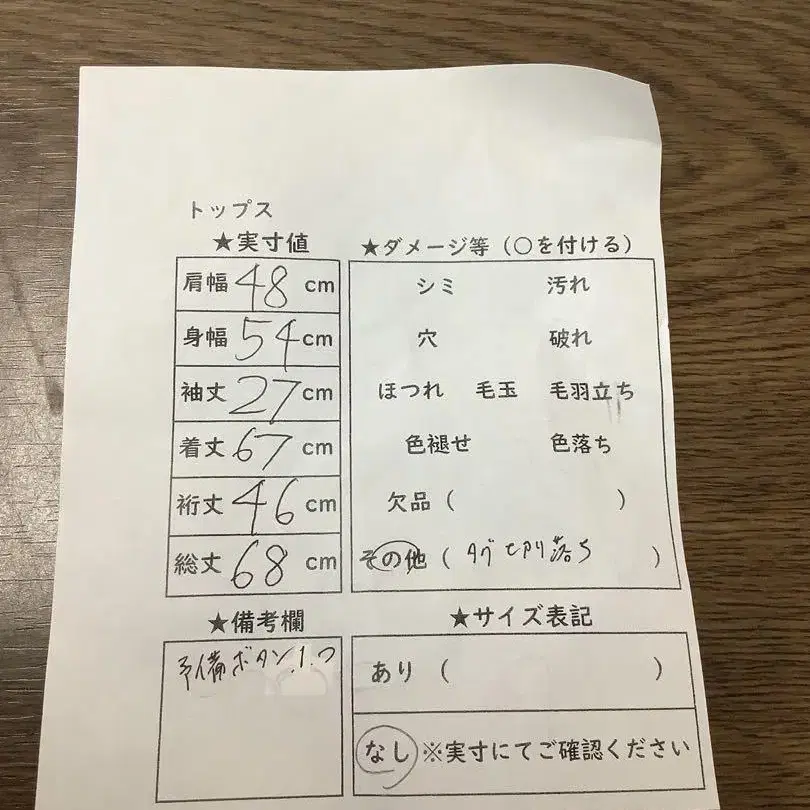 トップス
★実寸値
肩幅 48 cm
身幅 54 cm
袖丈 27 cm
着丈 67 cm
裄丈 46 cm
総丈 68 cm
★ダメージ等（○を付ける）
シミ 汚れ
穴 破れ
ほつれ 毛玉 毛羽立ち
色褪せ 色落ち
欠品（ ）
その他（タグ切り落ち）
★備考欄
予備ボタン1つ
★サイズ表記
あり（ ）
なし ※実寸にてご確認ください